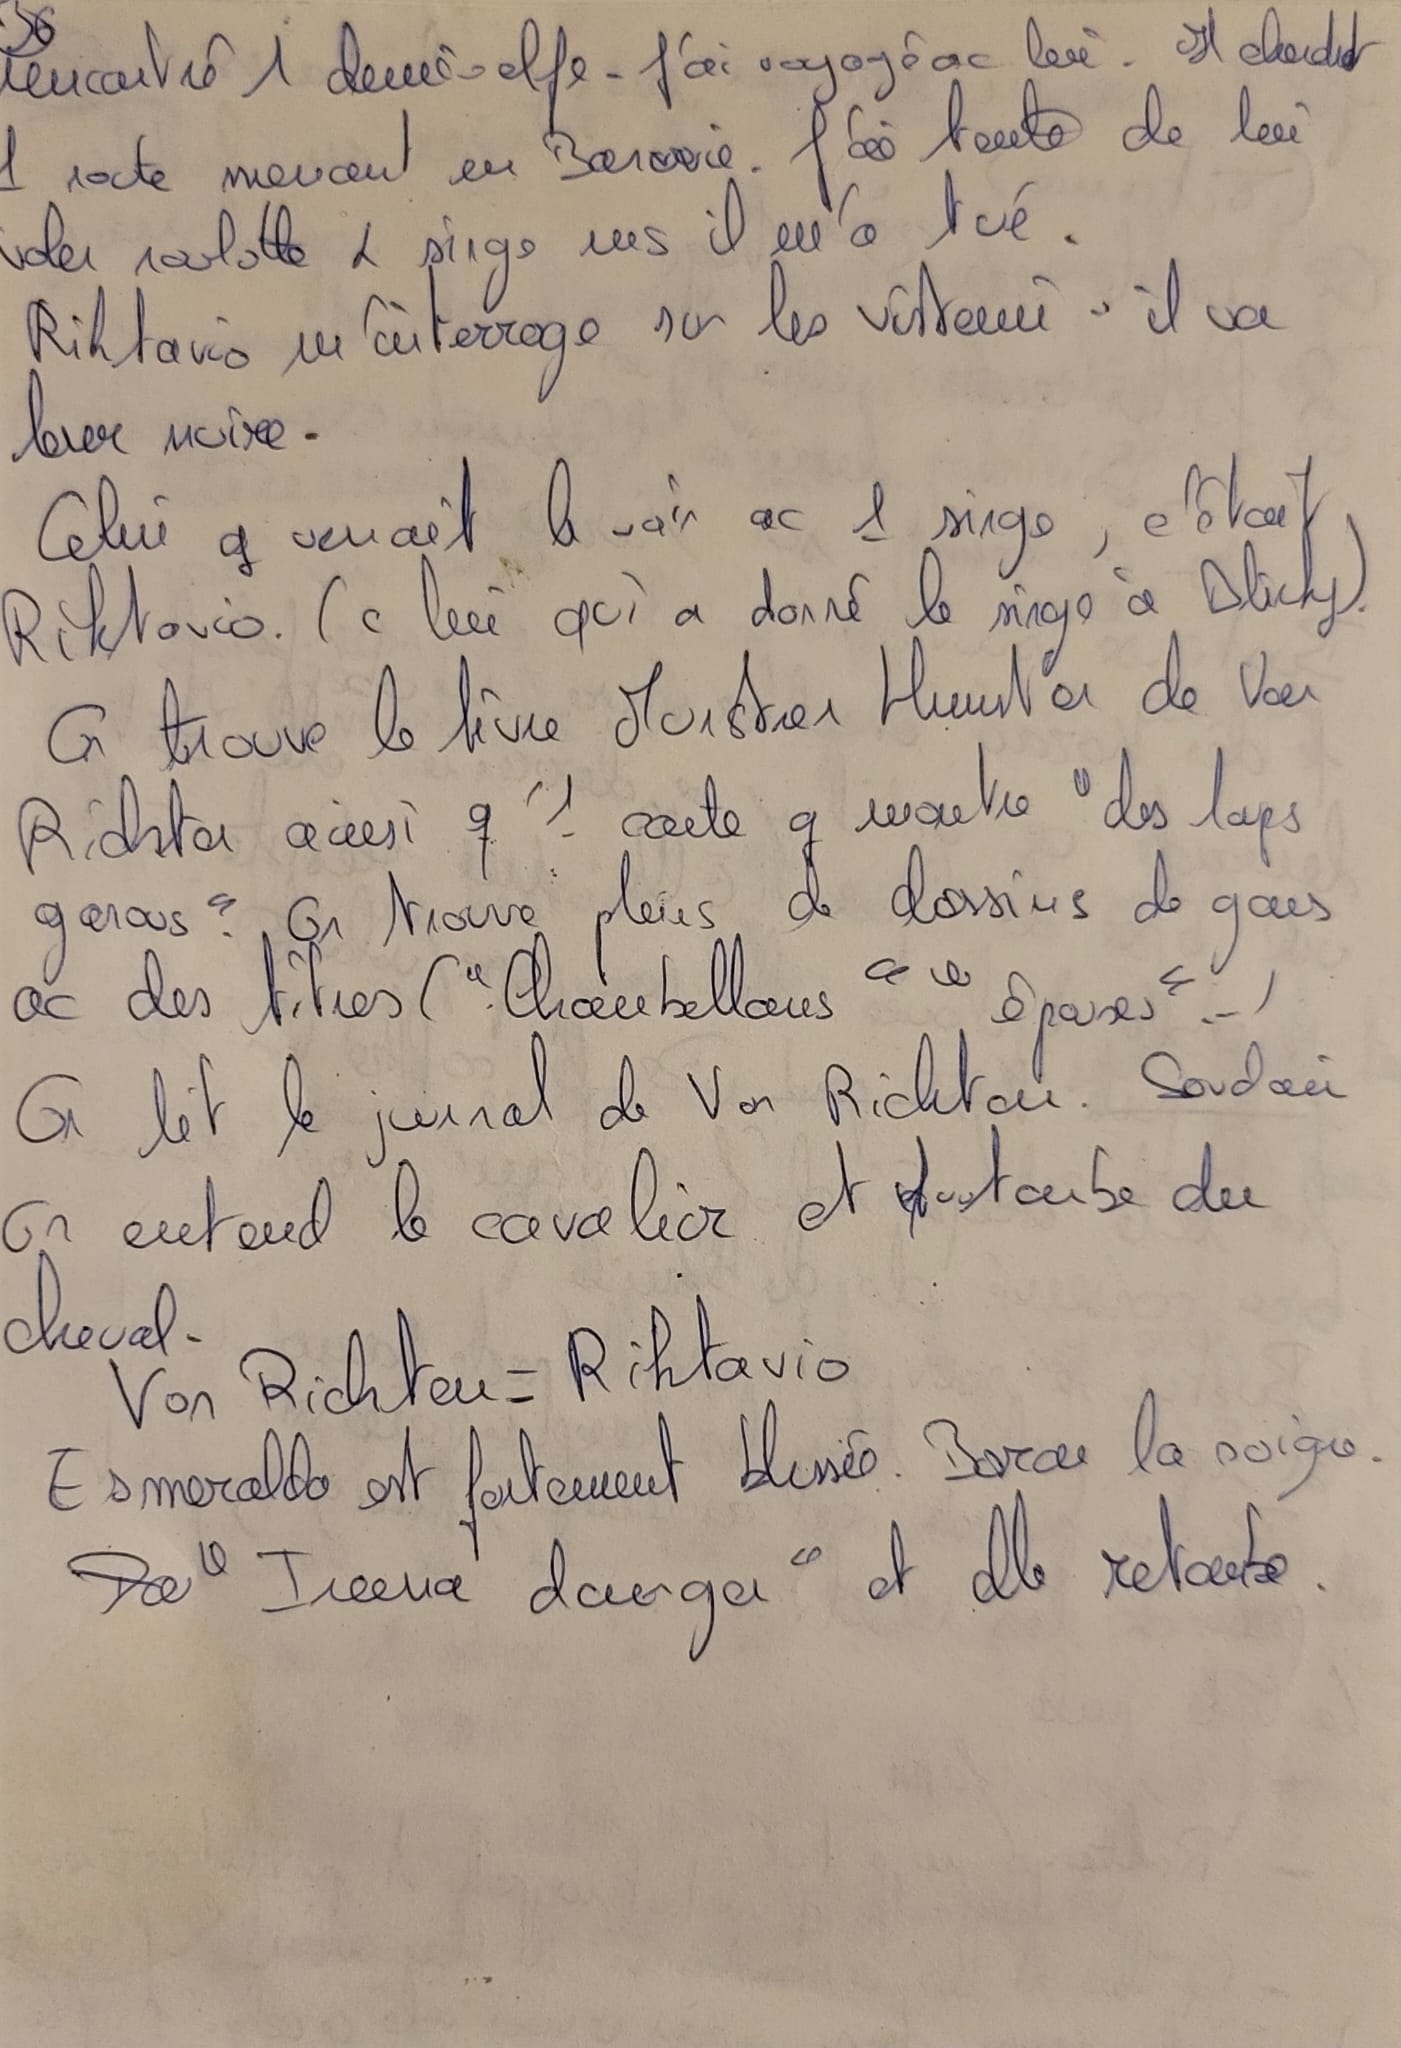 36
rencontré 1 demi-elfe - J'ai voyagé ac lui. Il cherchait
1 route menant en Barovie. J'ai tenté de lui
voler roulotte & singe ms il m'a tué.
Rihtavio m'interroge sur les Vistani - il va
leur nuire.
Celui q venait le voir ac 1 singe, c'était
Rihtavio. (c lui qui a donné le singe à Blichy).
On trouve le livre Monster Hunter de Van
Richten ainsi q '1 carte q montre "des loups
garous". On trouve pleins de dossiers de gens
ac des titres ("Chambellans" "épaves" ...)
On lit le journal de Van Richten. Soudain
On entend le cavalier et tombe du
cheval.
Van Richten = Rihtavio
Esmeralda est fortement blessée. Baran la soigne.
"Ireena danger" et elle retombe.